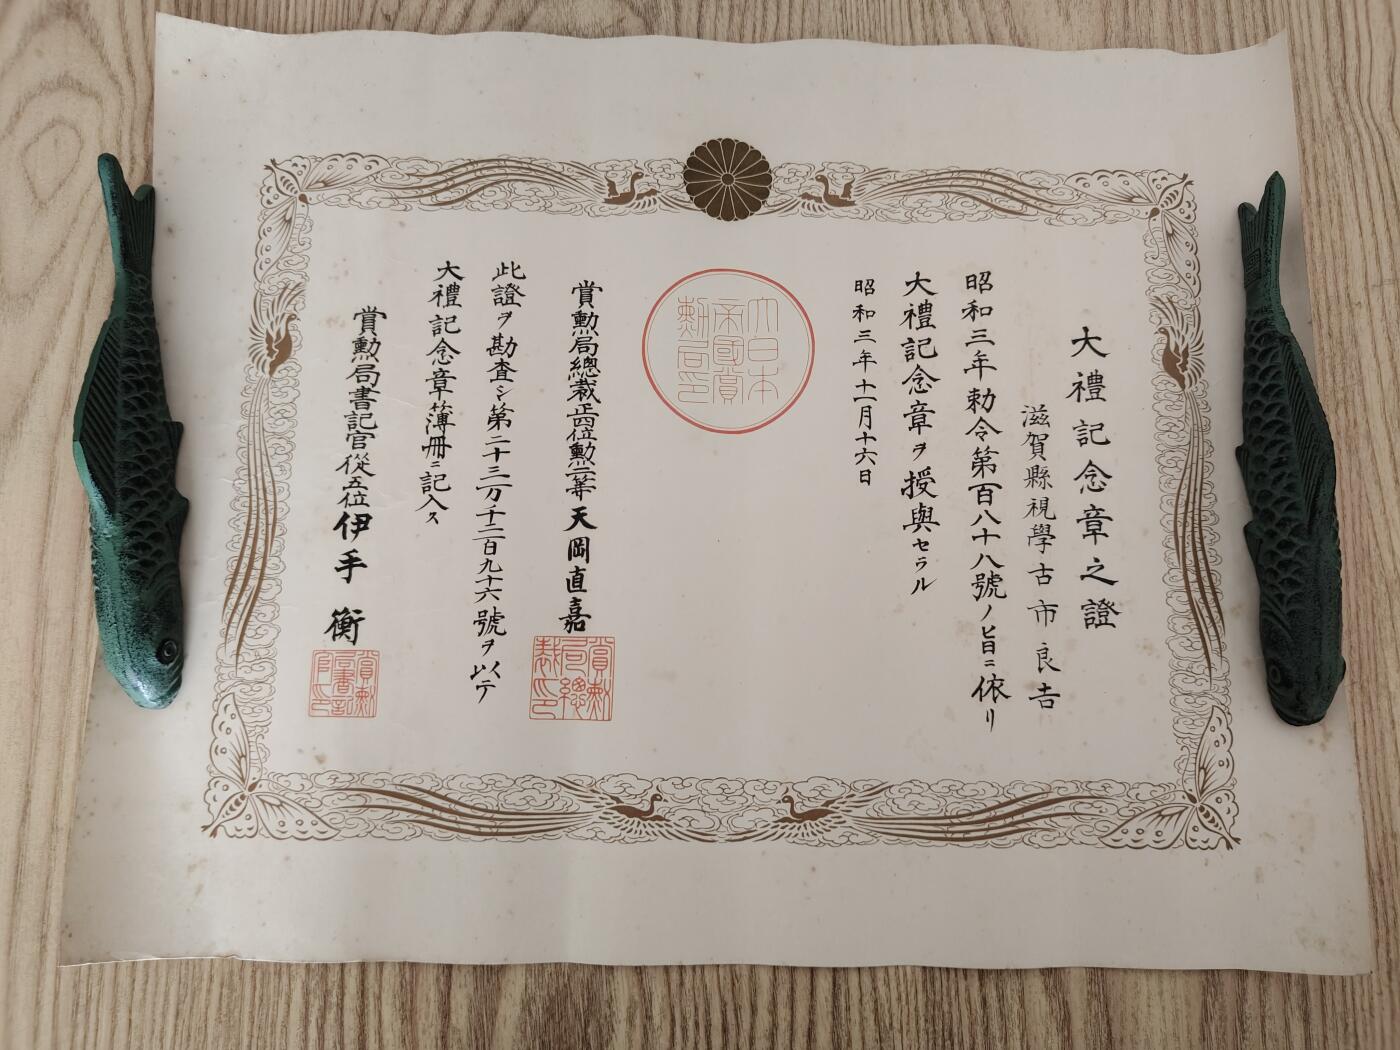 大禮記念章之證
滋賀縣視學古市良吉
昭和三年勅令第百八十八號ノ旨ニ依リ
大禮記念章ヲ授與セラル
昭和三年十一月十六日
大日本帝國賞勲局印
賞勲局總裁正四位勲二等天岡直嘉
賞勲局總裁印
此證ヲ勘査シ第二十三万千二百九十六號ヲ以テ
大禮記念章簿冊ニ記入ス
賞勲局書記官從五位伊手衡
賞勲局書記官印